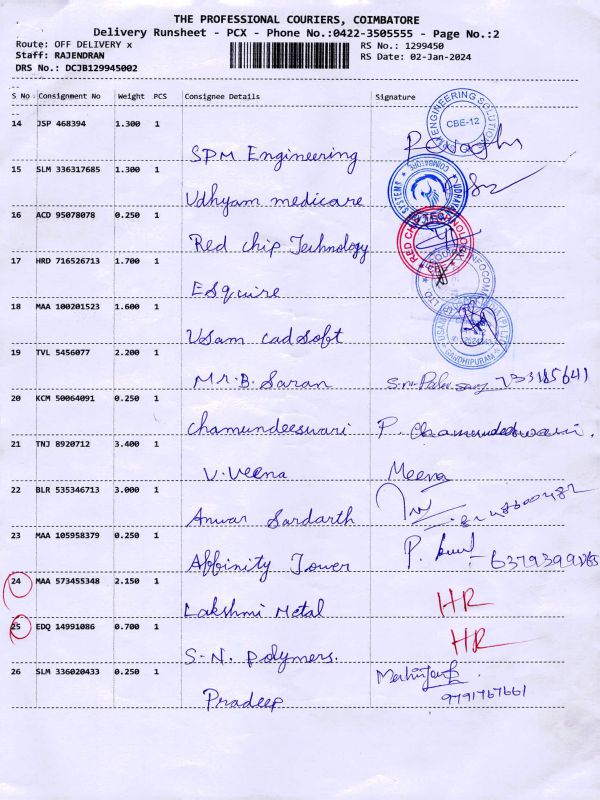 THE PROFESSIONAL COURIERS, COIMBATORE
Delivery Runsheet - PCX - Phone No.:0422-3505555 - Page No.:2
Route: OFF DELIVERY x RS No.: 1299450
Staff: RAJENDRAN RS Date: 02-Jan-2024
DRS No.: DCJB129945002
S No Consignment No Weight PCS Consignee Details Signature
ENGINEERING SOLUTION
CBE-12
14 JSP 468394 1.300 1
SPM Engineering
15 SLM 336317685 1.300 1
SYSTEMS
Udhyam medicare
16 ACD 95078078 0.250 1
RED CHIP TECHNOLOGY
Red chip Technology
17 HRD 716526713 1.700 1
INFOCOM
Esquire
18 MAA 100201523 1.600 1
GANDHIPURAM
Usam cad soft
19 TVL 5456077 2.200 1
Mr.B. Saran
20 KCM 50064091 0.250 1
Chamundeeswari P. Chamundeeswari.
21 TNJ 8920712 3.400 1
V.Veena Meena
22 BLR 535346713 3.000 1
Anwar Sardarth
23 MAA 105958379 0.250 1
Affinity Tower P.
24 MAA 573455348 2.150 1 HR
Lakshmi Metal
25 EDQ 14991086 0.700 1 HR
S-N. Polymers.
26 SLM 336020433 0.250 1
Pradeep 9791767661